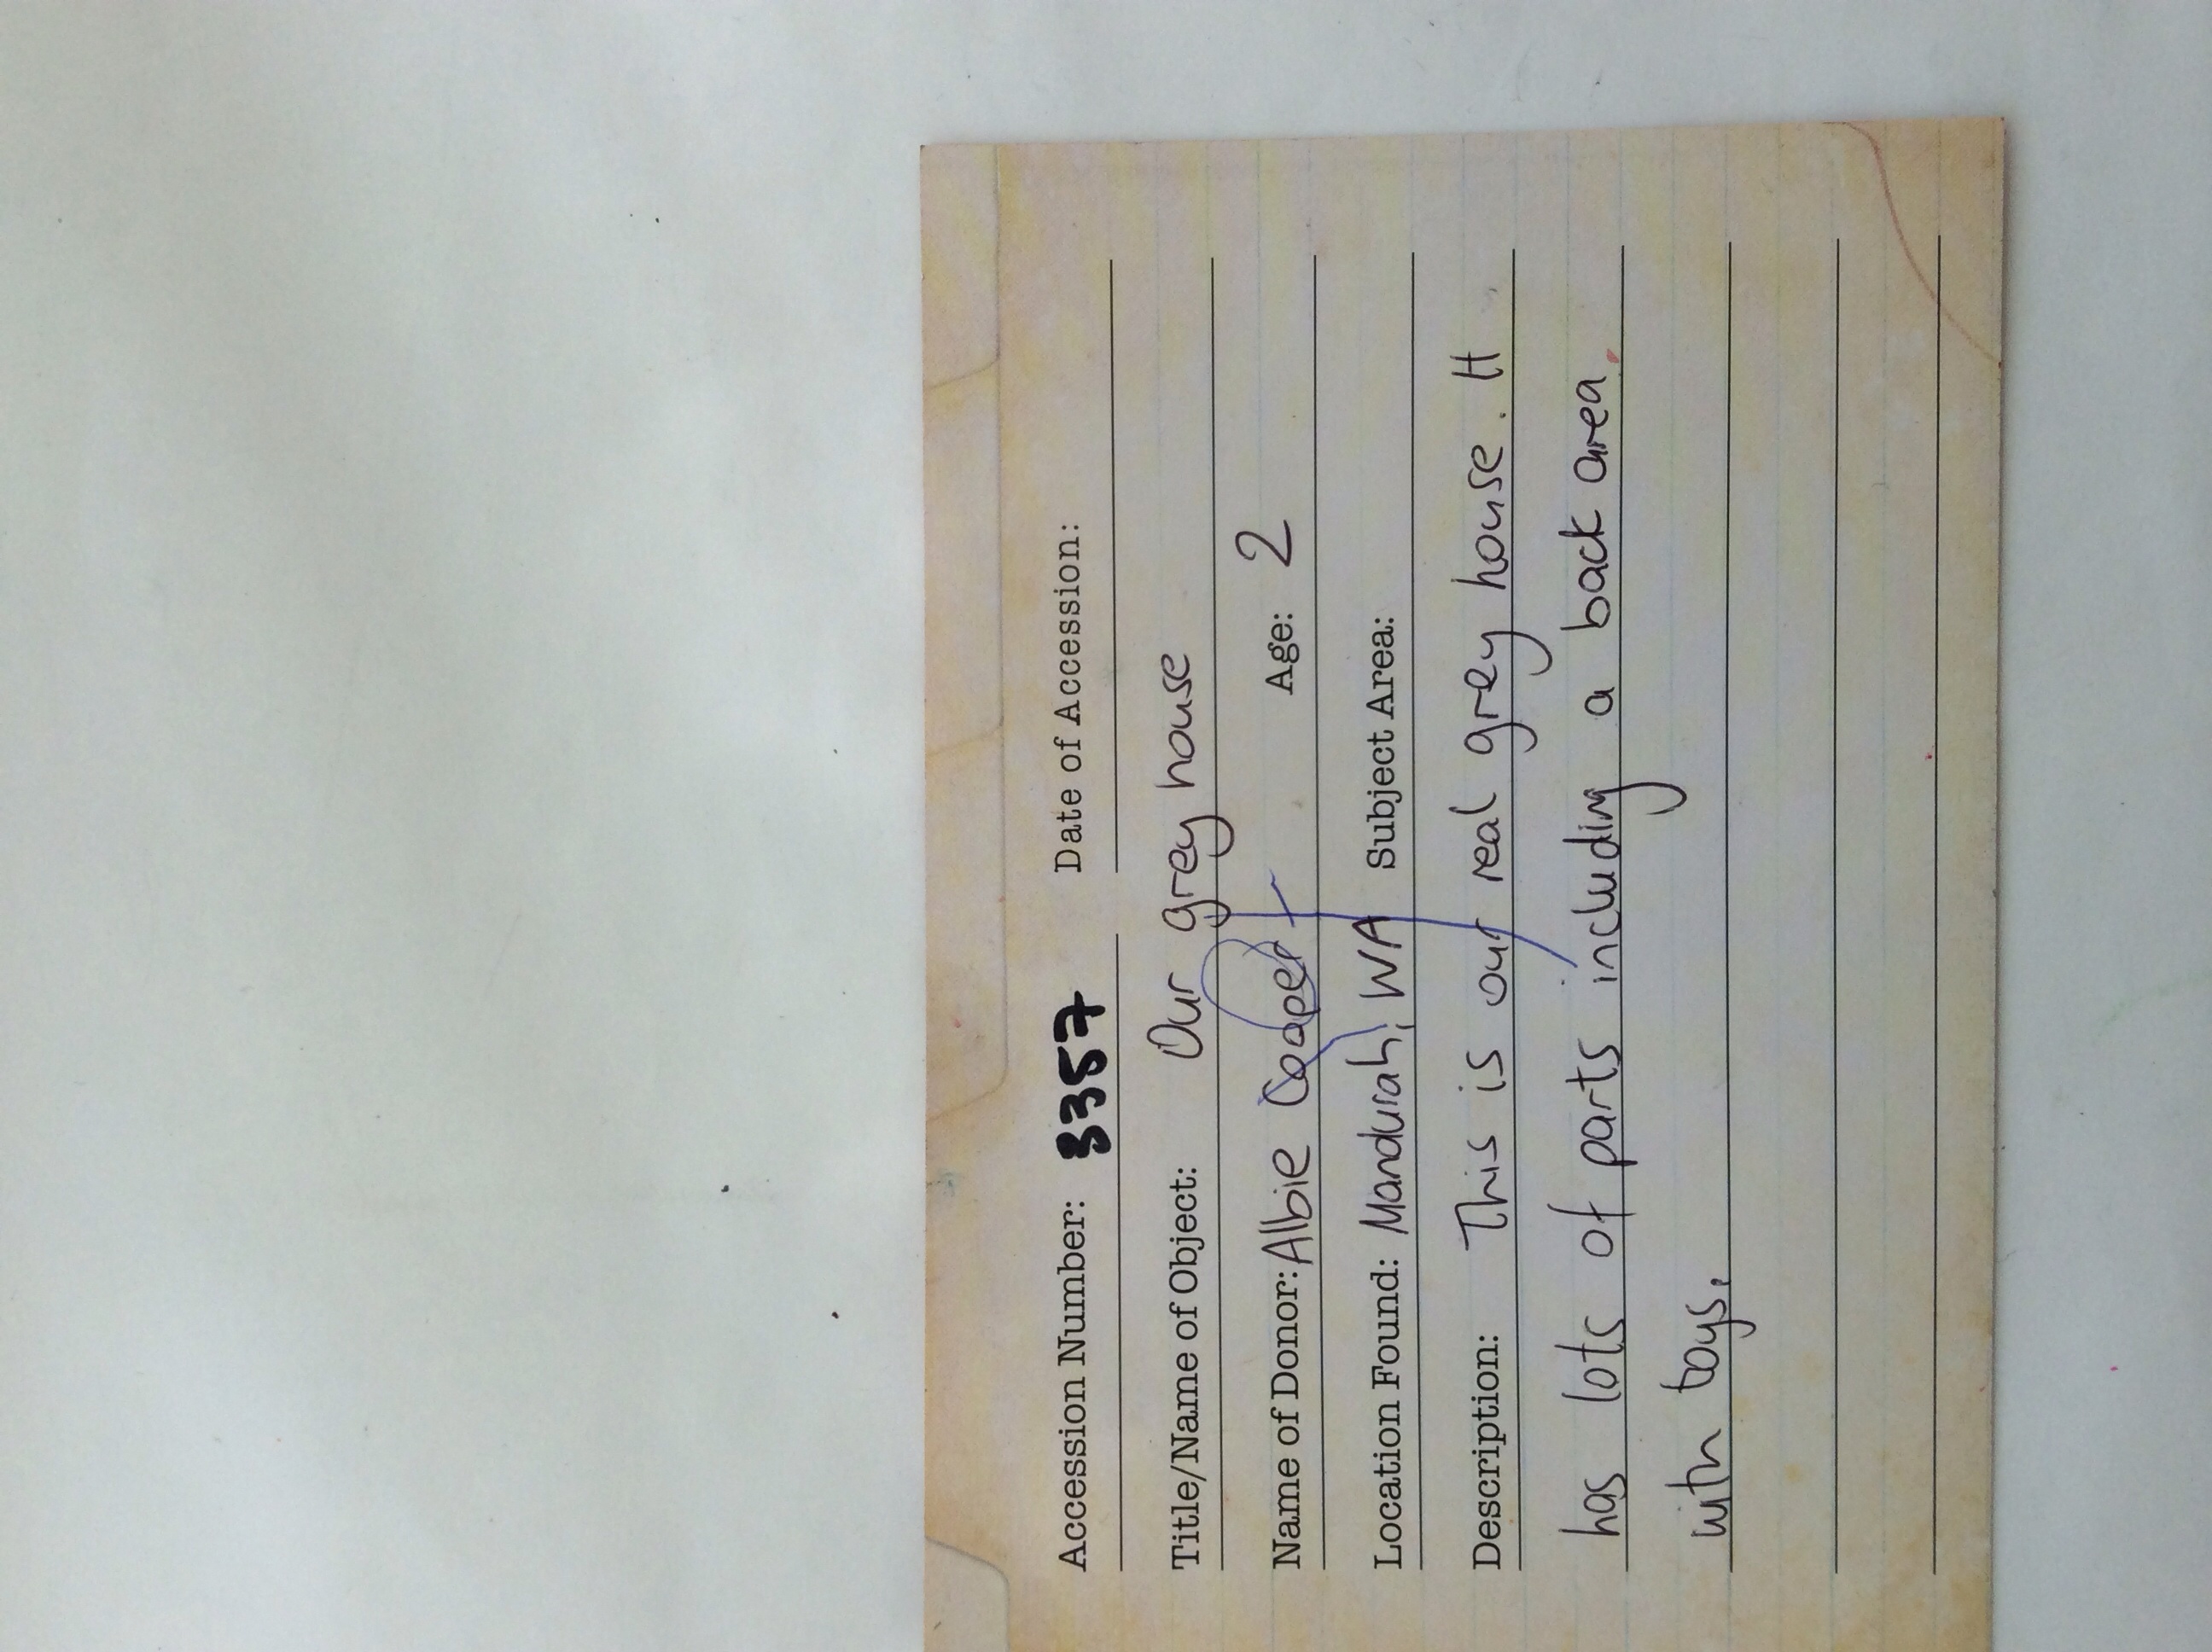 Accession Number: 3357 Date of Accession:
Title/Name of Object: Our grey house
Name of Donor: Albie Cooper Age: 2
Location Found: Mandurah, WA Subject Area:
Description: This is our real grey house. It
has lots of parts including a back area
with toys.